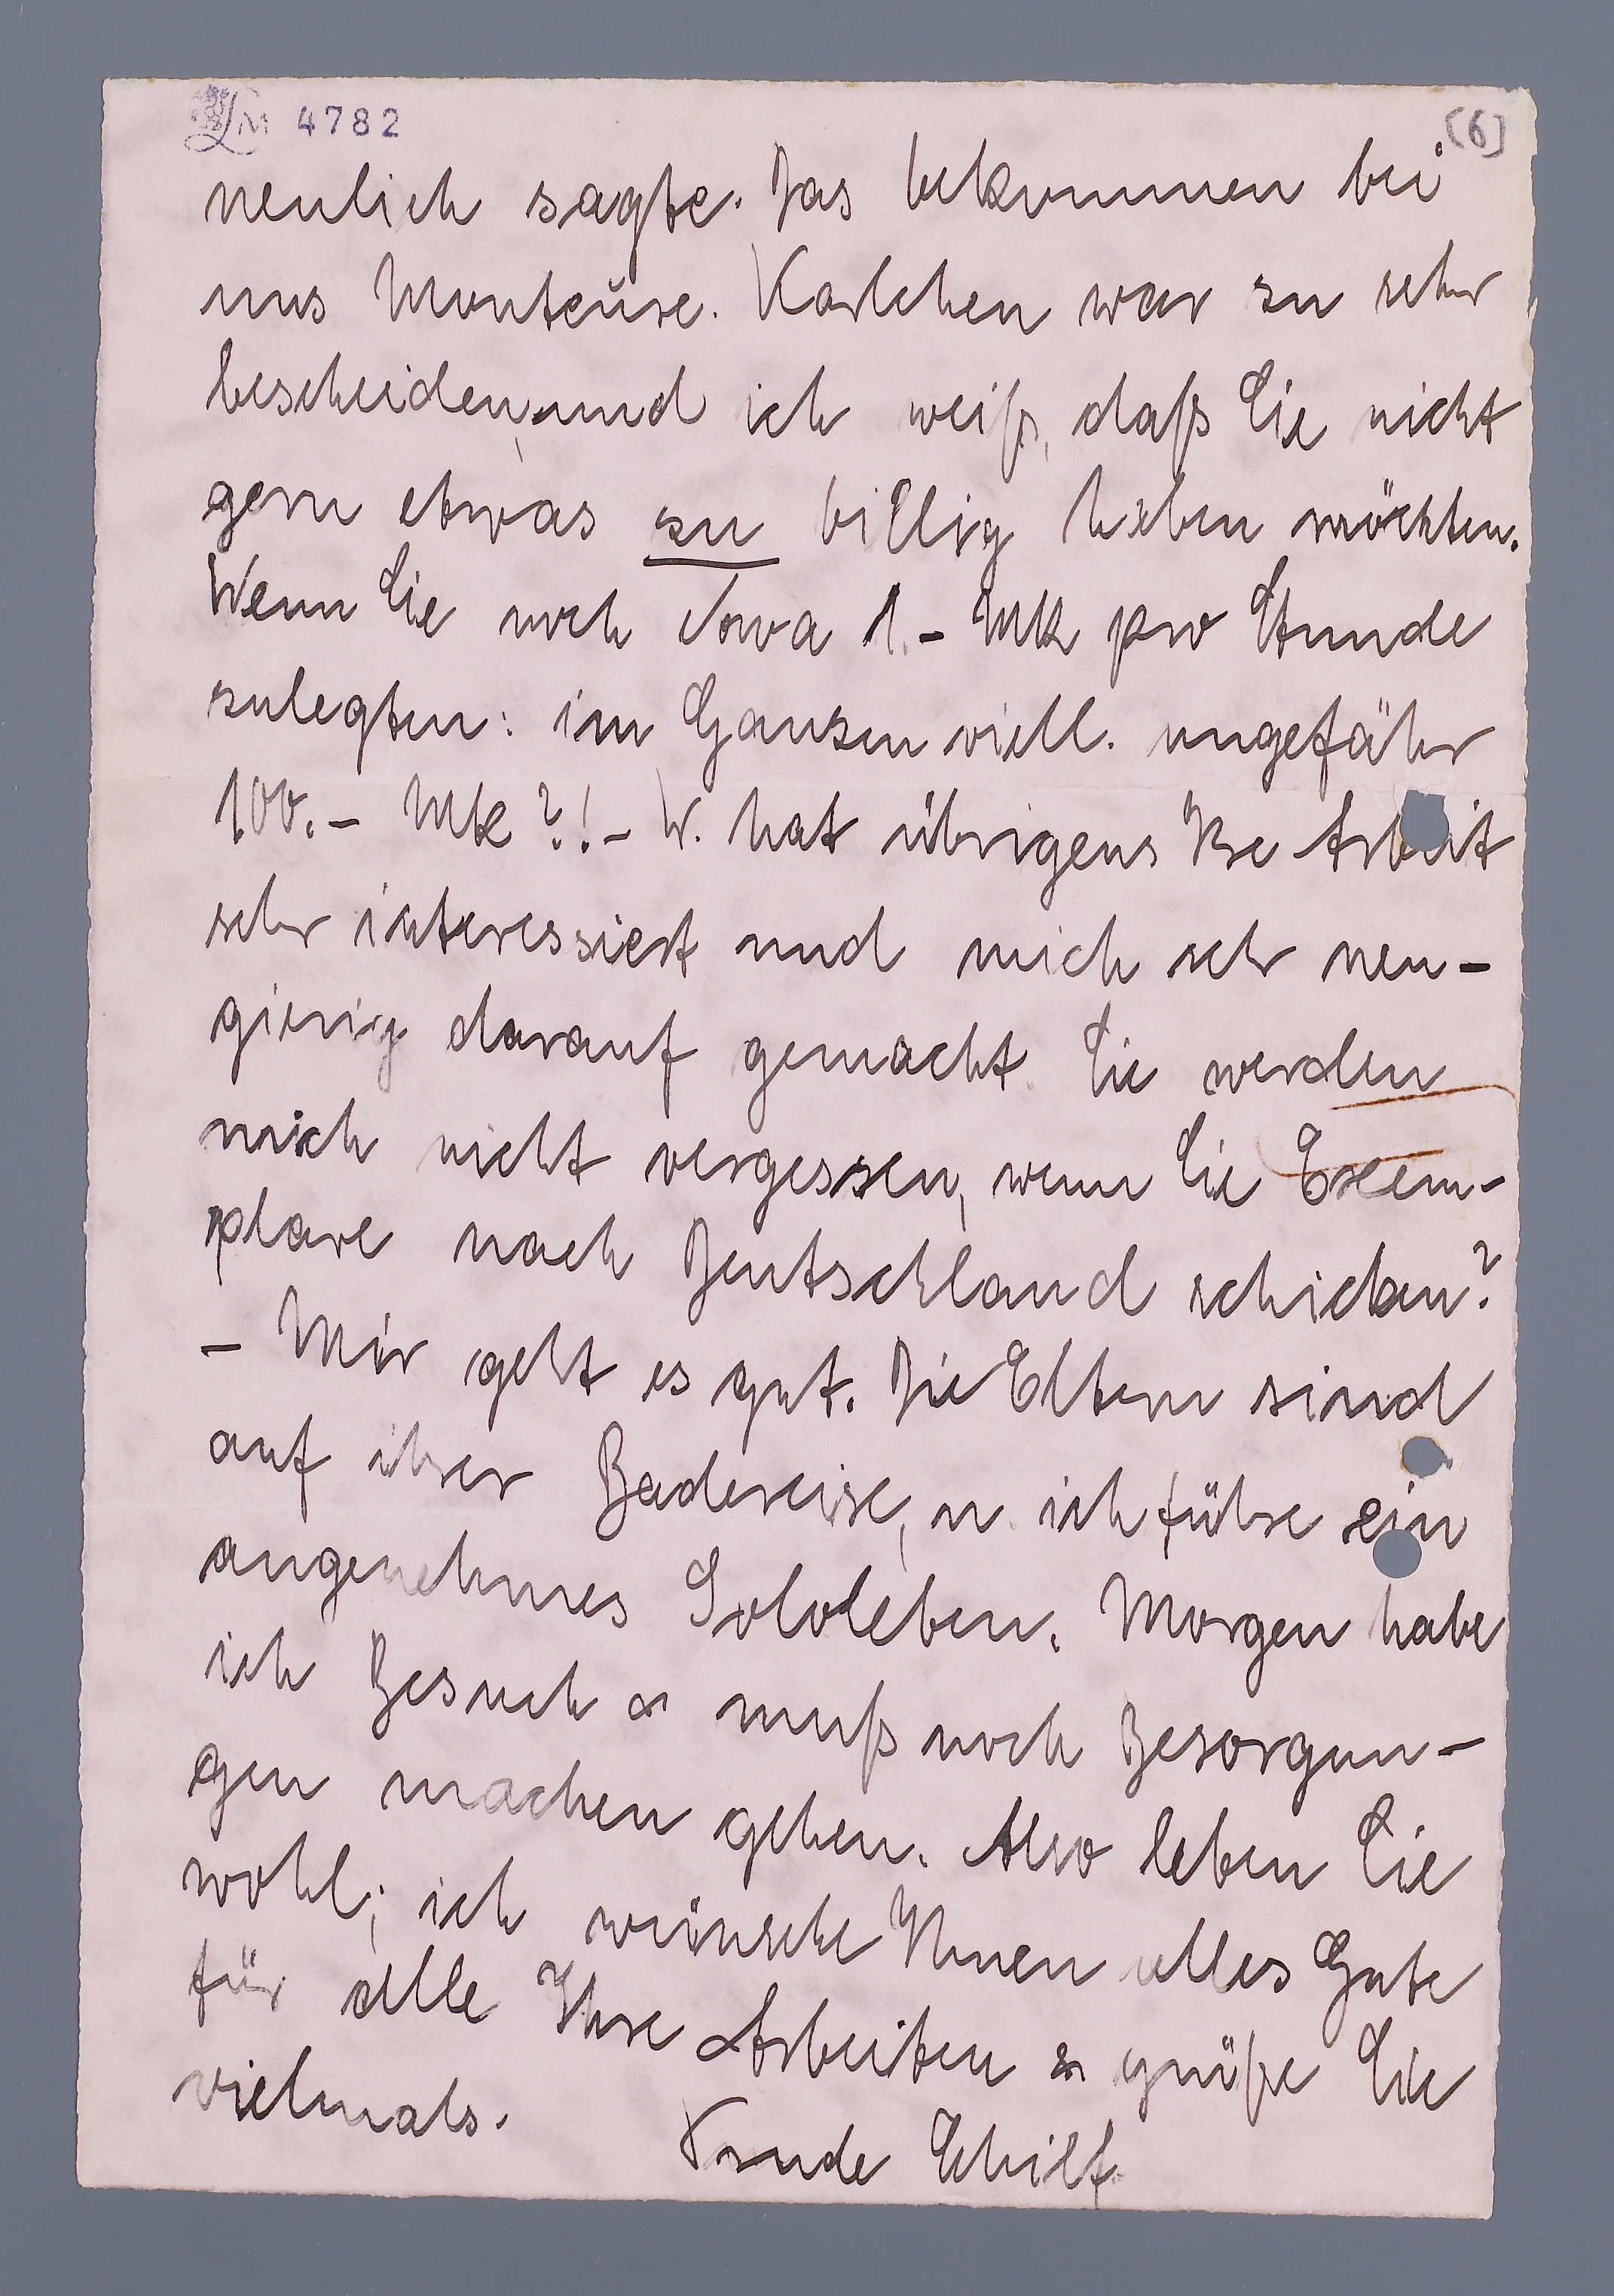 4782
(6)
neulich sagte. Das bekommen bei
uns Monteure. Karlchen war zu sehr
bescheiden, und ich weiß, daß Sie nicht
gern etwas zu billig haben möchten.
Wenn Sie noch 1.- Mk pro Stunde
zulegten: im Ganzen viell. ungefähr
100.- Mk?!- W. hat übrigens Ihre Arbeit
sehr interessiert und mich sehr neu-
gierig darauf gemacht. Sie werden
mich nicht vergessen, wenn Sie Exem-
plare nach Deutschland schicken?
- Mir geht es gut. Die Eltern sind
auf ihrer Badereise, u. ich führe ein
angenehmes Sololeben. Morgen habe
ich Besuch & muß noch Besorgun-
gen machen gehen. Also leben Sie
wohl; ich wünsche Ihnen alles Gute
für alle Ihre Arbeiten & grüße Sie
vielmals.
Trude Schilf